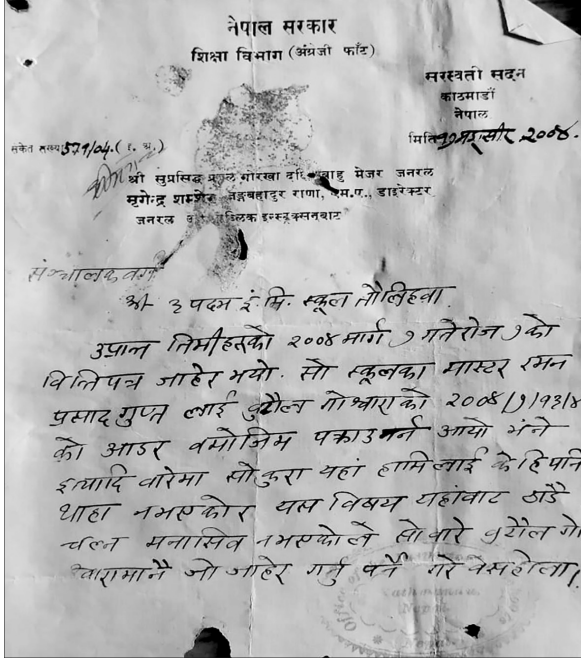 नेपाल सरकार
शिक्षा विभाग (अंग्रेजी फाँट)
सरस्वती सदन
काठमाडौं
नेपाल
संकेत नम्बर 579/04. (इ. अ.)
मिति २००४.
श्री सुप्रसिद्ध प्रबल गोरखा बाहु मेजर जनरल
मृगेन्द्र शम्शेर जङ्गबहादुर राणा, एम.ए., डाइरेक्टर
जनरल पब्लिक इन्स्ट्रक्सनबाट
संञ्चालक वर्ग
श्री ३ पदम ई. मि. स्कूल तौलिहवा
उप्रान्त तिमीहरुको २००४ मार्ग १ गते रोज १ को
विन्तिपत्र जाहेर भयो. सो स्कूलका मास्टर रमन
प्रसाद गुप्त लाई बुटौल गोश्वाराको २००४/१/१३/४
को आडर वमोजिम पक्राउ गर्न आयो भंने
इत्यादि वारेमा सो कुरा यहां हामिलाई केहि पनि
थाहा नभएको र यस विषय यहांवाट ठाडै
चल्न मनासिव नभएकोले सो वारे बुटौल गो
श्वारामानै जो जाहेर गर्नु पर्ने गरे वसहोला।